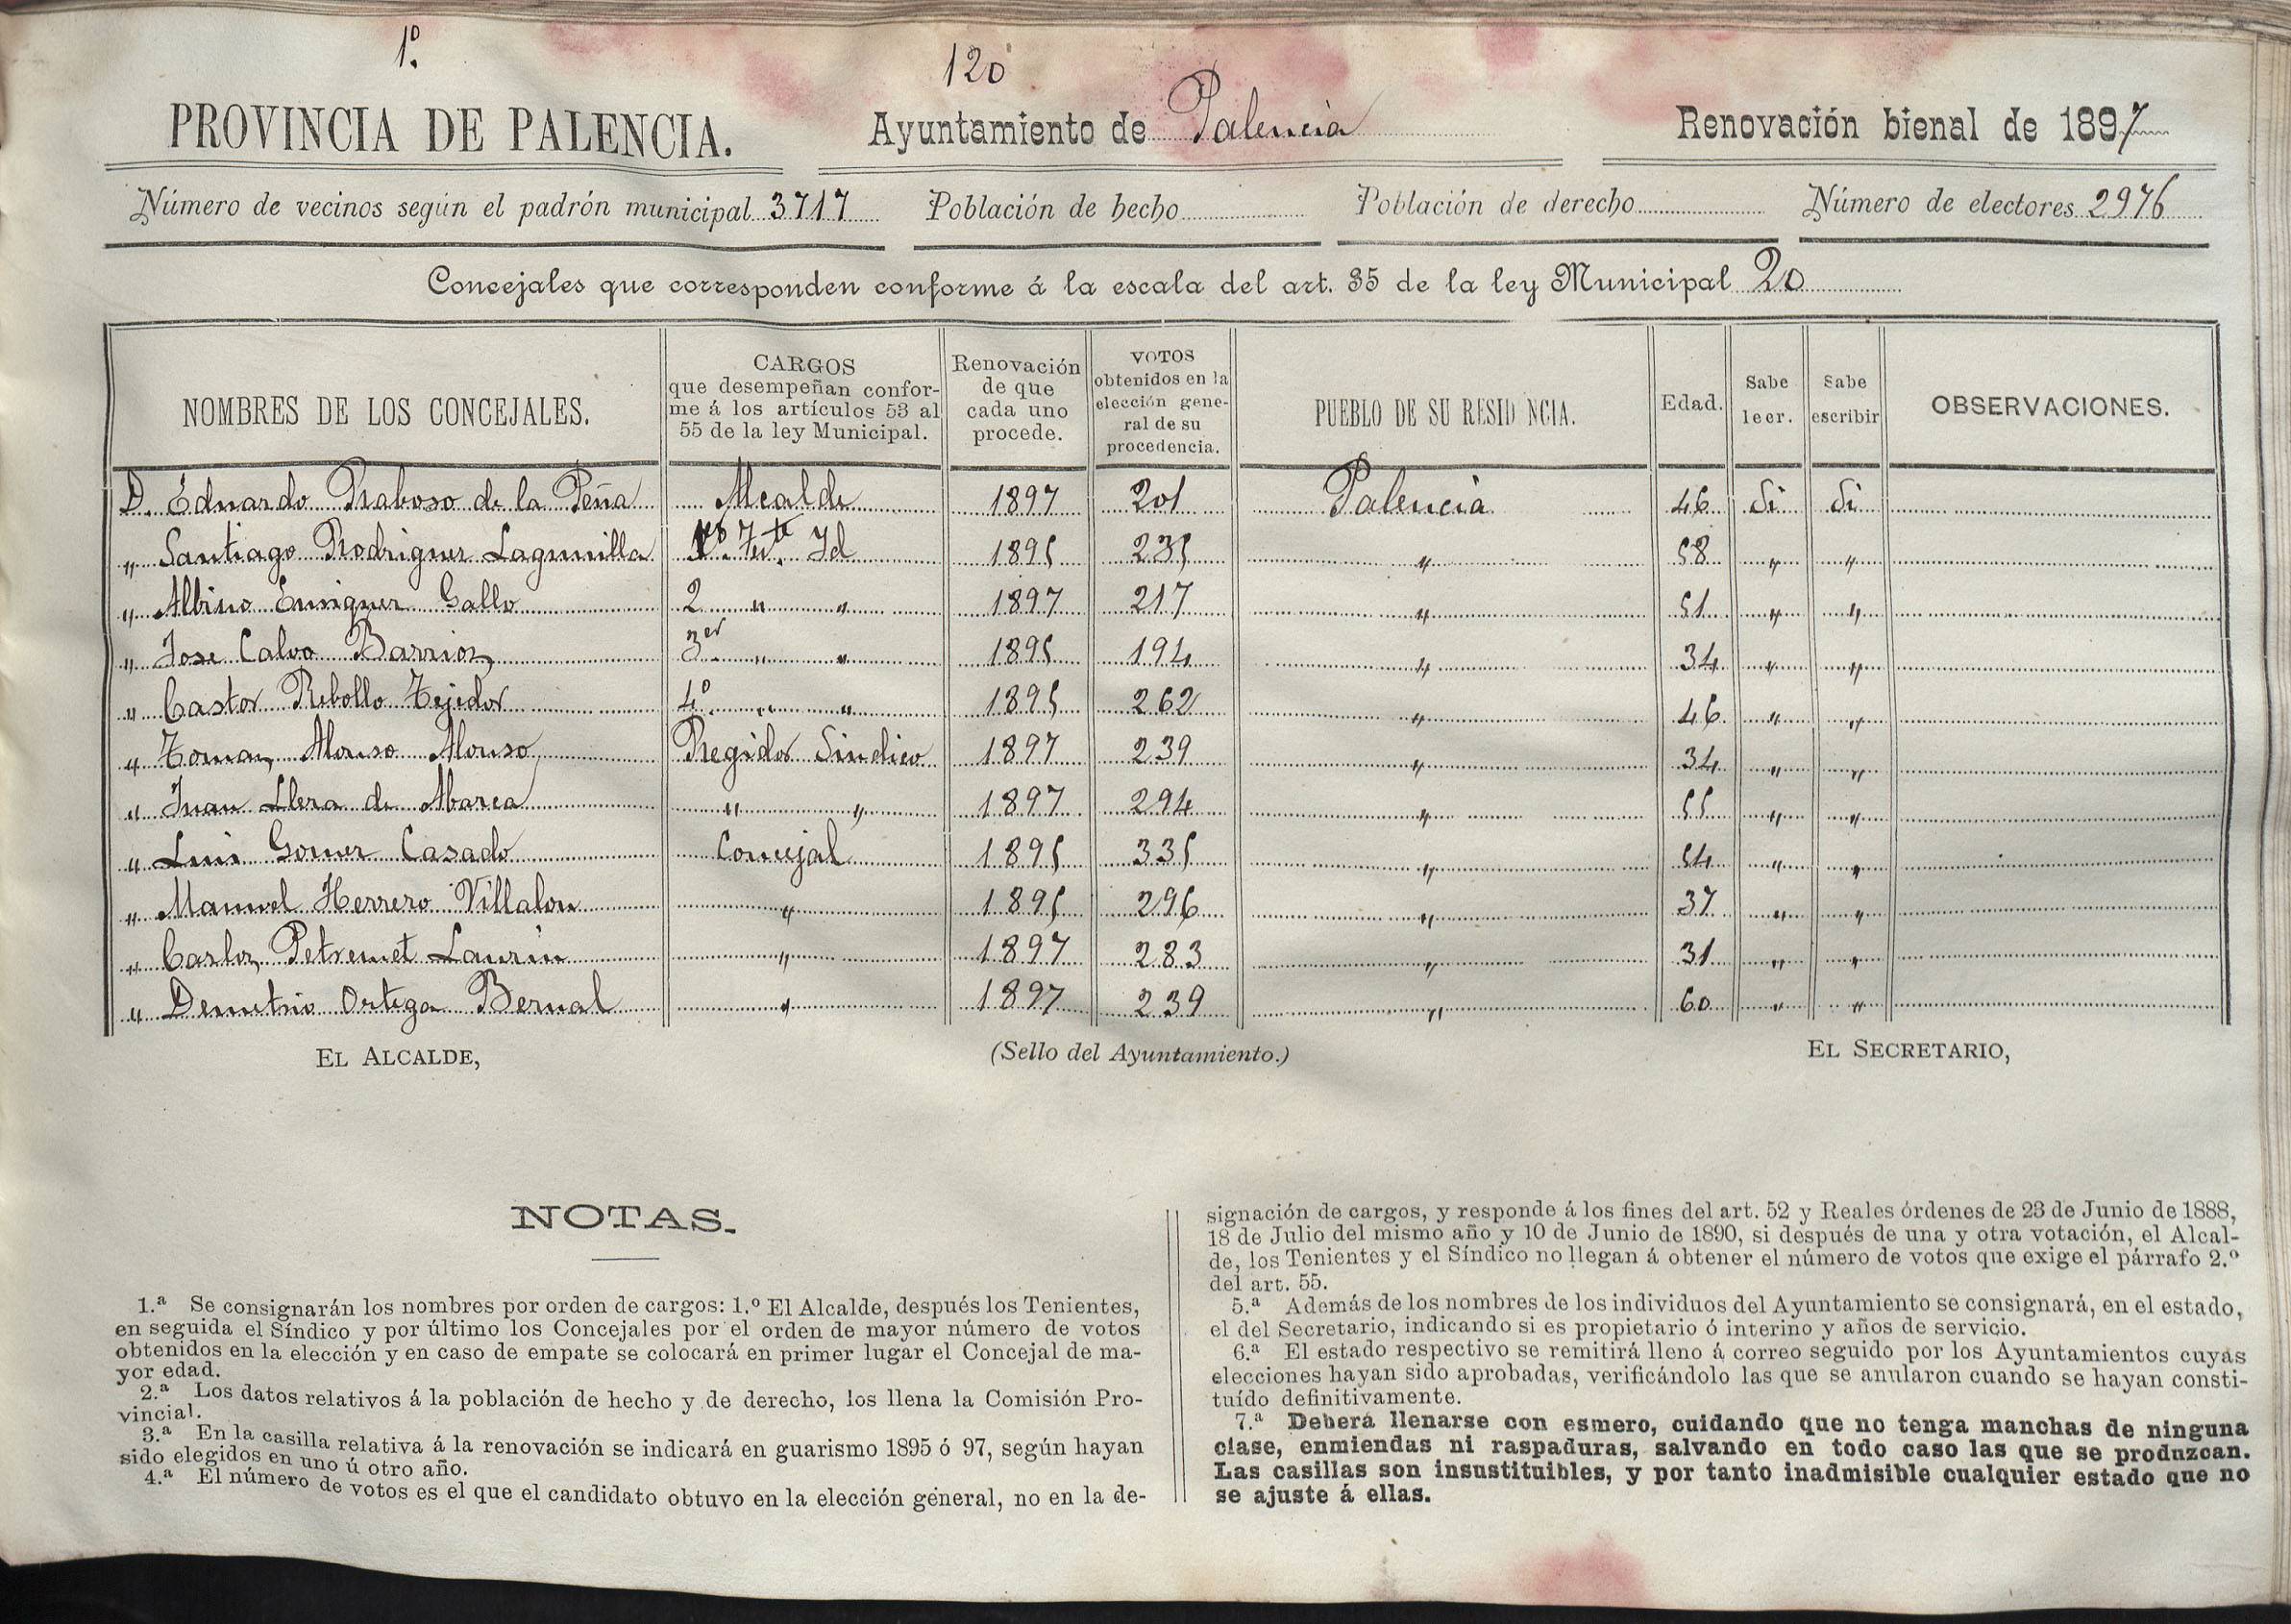 1º.
120
PROVINCIA DE PALENCIA. Ayuntamiento de Palencia Renovación bienal de 1897
Número de vecinos según el padrón municipal 3717 Población de hecho Población de derecho Número de electores 2976
Concejales que corresponden conforme á la escala del art. 35 de la ley Municipal 20
NOMBRES DE LOS CONCEJALES.
CARGOS
que desempeñan confor-
me á los artículos 53 al
55 de la ley Municipal.
Renovación
de que
cada uno
procede.
VOTOS
obtenidos en la
elección gene-
ral de su
procedencia.
PUEBLO DE SU RESID NCIA.
Edad.
Sabe
leer.
Sabe
escribir
OBSERVACIONES.
D. Eduardo Raboso de la Peña Alcalde 1897 201 Palencia 46 Si Si
" Santiago Rodriguez Lagunilla 1º Tte. Id 1895 235 " 58 " "
" Albino Enriquez Gallo 2 " " 1897 217 " 51 " "
" Jose Calvo Barrios 3er " " 1895 194 " 34 " "
" Castor Rebollo Tejedor 4º " " 1895 262 " 46 " "
" Tomas Alonso Alonso Regidor Sindico 1897 239 " 34 " "
" Juan Llera de Abarca " " 1897 294 " 55 " "
" Luis Gomez Casado Concejal 1895 335 " 54 " "
" Manuel Herrero Villalon " 1895 296 " 37 " "
" Carlos Petrement Laurin " 1897 283 " 31 " "
" Demetrio Ortega Bernal " 1897 239 " 60 " "
EL ALCALDE, (Sello del Ayuntamiento.) EL SECRETARIO,
NOTAS.
1.ª Se consignarán los nombres por orden de cargos: 1.º El Alcalde, después los Tenientes,
en seguida el Síndico y por último los Concejales por el orden de mayor número de votos
obtenidos en la elección y en caso de empate se colocará en primer lugar el Concejal de ma-
yor edad.
2.ª Los datos relativos á la población de hecho y de derecho, los llena la Comisión Pro-
vincial.
3.ª En la casilla relativa á la renovación se indicará en guarismo 1895 ó 97, según hayan
sido elegidos en uno ú otro año.
4.ª El número de votos es el que el candidato obtuvo en la elección general, no en la de-
signación de cargos, y responde á los fines del art. 52 y Reales órdenes de 23 de Junio de 1888,
18 de Julio del mismo año y 10 de Junio de 1890, si después de una y otra votación, el Alcal-
de, los Tenientes y el Síndico no llegan á obtener el número de votos que exige el párrafo 2.º
del art. 55.
5.ª Además de los nombres de los individuos del Ayuntamiento se consignará, en el estado,
el del Secretario, indicando si es propietario ó interino y años de servicio.
6.ª El estado respectivo se remitirá lleno á correo seguido por los Ayuntamientos cuyas
elecciones hayan sido aprobadas, verificándolo las que se anularon cuando se hayan consti-
tuído definitivamente.
7.ª Deberá llenarse con esmero, cuidando que no tenga manchas de ninguna
clase, enmiendas ni raspaduras, salvando en todo caso las que se produzcan.
Las casillas son insustituibles, y por tanto inadmisible cualquier estado que no
se ajuste á ellas.